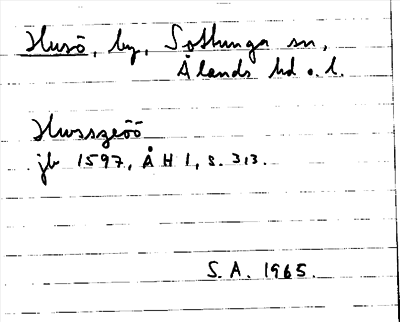 Husö, by, Sottunga sn,
Ålands hd o. l.
Husszeöö
jb 1597, ÅH 1, s. 313.
S.A. 1965.